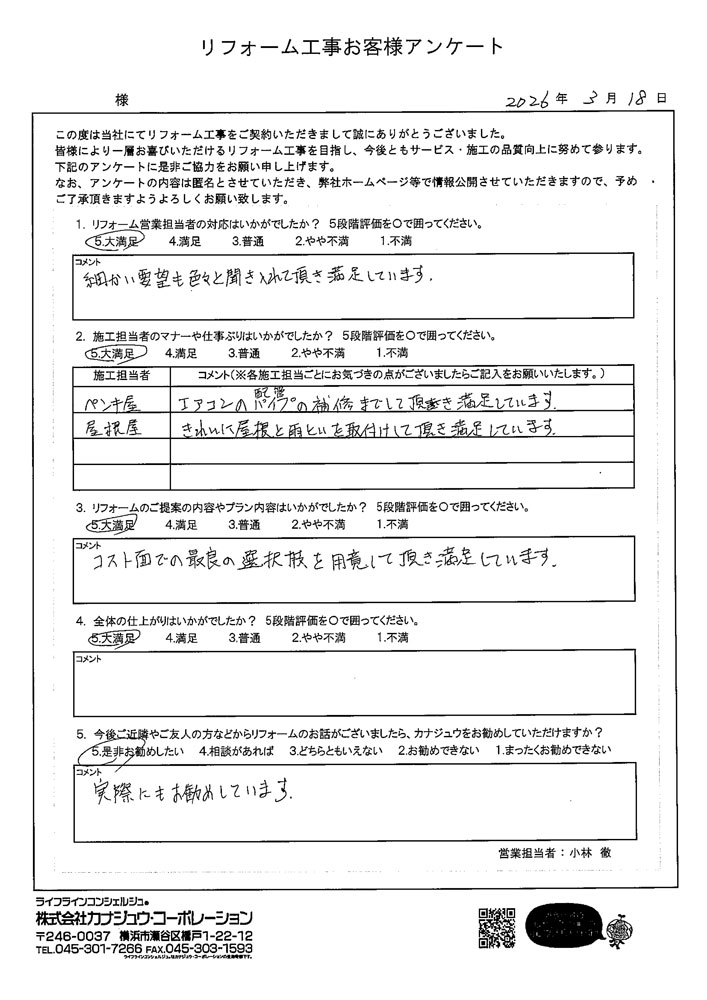 リフォーム工事お客様アンケート
様
2026年 3月 18日
この度は当社にてリフォーム工事をご契約いただきまして誠にありがとうございました。
皆様により一層お喜びいただけるリフォーム工事を目指し、今後ともサービス・施工の品質向上に努めて参ります。
下記のアンケートに是非ご協力をお願い申し上げます。
なお、アンケートの内容は匿名とさせていただき、弊社ホームページ等で情報公開させていただきますので、予め
ご了承頂きますようよろしくお願い致します。
1. リフォーム営業担当者の対応はいかがでしたか? 5段階評価を〇で囲ってください。
5.大満足 4.満足 3.普通 2.やや不満 1.不満
コメント
細かい要望も色々と聞き入れて頂き満足しています.
2. 施工担当者のマナーや仕事ぶりはいかがでしたか? 5段階評価を〇で囲ってください。
5.大満足 4.満足 3.普通 2.やや不満 1.不満
施工担当者 コメント(※各施工担当ごとにお気づきの点がございましたらご記入をお願いいたします。)
配管
ペンキ屋 エアコンのパイプの補修までして頂き満足しています.
屋根屋 きれいに屋根と雨といを取付けして頂き満足しています.
3. リフォームのご提案の内容やプラン内容はいかがでしたか? 5段階評価を〇で囲ってください。
5.大満足 4.満足 3.普通 2.やや不満 1.不満
コメント
コスト面での最良の選択肢を用意して頂き満足しています.
4. 全体の仕上がりはいかがでしたか? 5段階評価を〇で囲ってください。
5.大満足 4.満足 3.普通 2.やや不満 1.不満
コメント
5. 今後ご近隣やご友人の方などからリフォームのお話がございましたら、カナジュウをお勧めしていただけますか?
5.是非お勧めしたい 4.相談があれば 3.どちらともいえない 2.お勧めできない 1.まったくお勧めできない
コメント
実際にもお勧めしています.
営業担当者:小林 徹
ライフラインコンシェルジュ®
株式会社カナジュウ・コーポレーション
〒246-0037 横浜市瀬谷区橋戸1-22-12
TEL.045-301-7266 FAX.045-303-1593
ライフラインコンシェルジュ®はカナジュウ・コーポレーションの登録商標です。